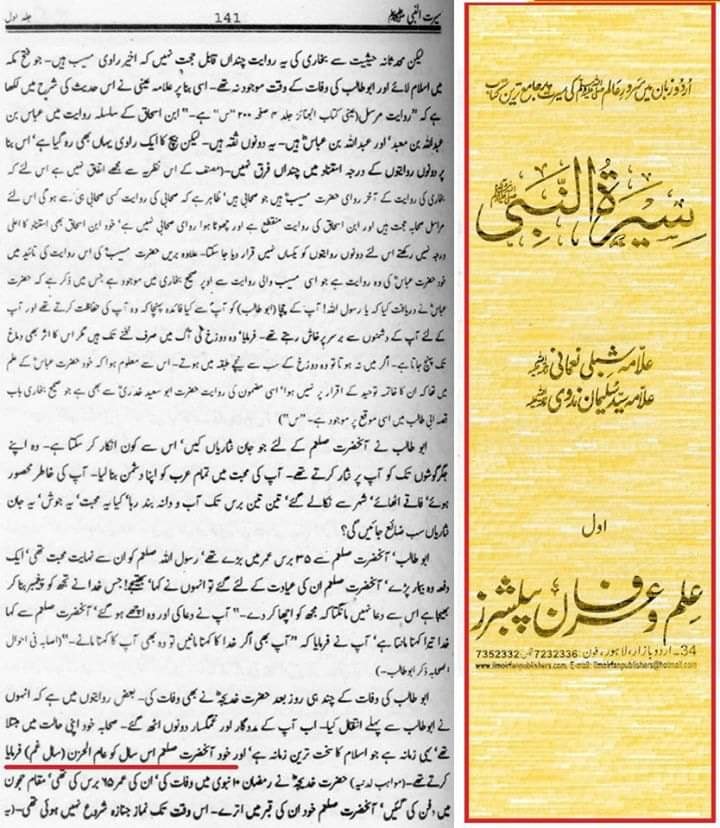 جلد اول
141
سیرت النبی ﷺ
لیکن محدثانہ حیثیت سے بخاری کی یہ روایت چنداں قابل حجت نہیں کہ اخیر راوی مسیب ہیں۔ جو فتح مکہ
میں اسلام لائے اور ابوطالب کی وفات کے وقت موجود نہ تھے۔ اسی بنا پر علامہ عینی نے اس حدیث کی شرح میں لکھا
ہے کہ "روایت مرسل (عینی کتاب الجنائز جلد ۴ صفحہ ۲۰۰ "س") ہے۔" ابن اسحاق کے سلسلہ روایت میں عباس بن
عبداللہ بن معبد' اور عبداللہ بن عباس ہیں۔ یہ دونوں ثقہ ہیں۔ لیکن بیچ کا ایک راوی یہاں بھی رہ گیا ہے' اس بنا
پر دونوں روایتوں کے درجہ استناد میں چنداں فرق نہیں۔ (مصنف کے اس نظریہ سے مجھے اتفاق نہیں ہے اس لئے کہ
بخاری کی روایت کے آخر راوی حضرت مسیب ہیں جو صحابی ہیں' ظاہر ہے کہ صحابی کی روایت کسی صحابی ہی سے ہو گی اس لئے
مراسل صحابہ حجت ہیں اور ابن اسحاق کی روایت منقطع ہے اور چھوٹا ہوا راوی صحابی نہیں ہے' خود ابن اسحاق بھی استناد کا اعلی
درجہ نہیں رکھتے اس لئے دونوں روایتوں کو یکساں نہیں قرار دیا جا سکتا۔ علاوہ بریں حضرت مسیب کی اس روایت کی تائید میں
خود حضرت عباس کی وہ روایت ہے جو اسی مسیب والی روایت سے اوپر صحیح بخاری میں موجود ہے، جس میں ذکر ہے کہ حضرت
عباس نے دریافت کیا کہ یا رسول اللہ! آپ کے چچا (ابو طالب) کو آپ سے کیا فائدہ پہنچا کہ وہ آپ کی حفاظت کرتے تھے اور آپ
کے لئے آپ کے دشمنوں سے برسر پرخاش رہتے تھے۔ فرمایا' وہ دوزخ کی آگ میں صرف ٹخنے تک ہیں مگر اس کا اثر بھی دماغ
تک پہنچ جاتا ہے۔ اگر میں نہ ہوتا تو وہ دوزخ کے سب سے نچلے طبقہ میں ہوتے۔ اس سے معلوم ہوا کہ خود حضرت عباس کے علم
میں تھا کہ ان کا خاتمہ توحید کے اقرار پر نہیں ہوا' اسی مضمون کی روایت حضرت ابو سعید خدری سے بھی ہے جو صحیح بخاری باب
قصہ ابی طالب میں اسی موقع پر موجود ہے۔ "س")
ابو طالب نے آنحضرت صلعم کے لئے جو جان نثاریاں کیں' اس سے کون انکار کر سکتا ہے۔ وہ اپنے
جگر گوشوں تک کو آپ پر نثار کرتے تھے۔ آپ کی محبت میں تمام عرب کو اپنا دشمن بنا لیا۔ آپ کی خاطر محصور
ہوئے' فاقے اٹھائے' شہر سے نکالے گئے' تین تین برس تک آب و دانہ بند رہا' کیا یہ محبت' یہ جوش' یہ جان
نثاریاں سب ضائع جائیں گی؟
ابو طالب' آنحضرت صلعم سے ۳۵ برس عمر میں بڑے تھے' رسول اللہ صلعم کو ان سے نہایت محبت تھی' ایک
دفعہ وہ بیمار پڑے' آنحضرت صلعم ان کی عیادت کے لئے گئے تو انہوں نے کہا' بھتیجے! جس خدا نے تجھ کو پیغمبر بنا کر
بھیجا ہے اس سے دعا نہیں مانگتا کہ مجھ کو اچھا کر دے۔" آپ نے دعا کی اور وہ اچھے ہو گئے' آنحضرت صلعم سے کہا
خدا تیرا کہنا مانتا ہے' آپ نے فرمایا کہ "آپ بھی اگر خدا کا کہنا مانیں تو وہ بھی آپ کا کہنا مانے۔" (اصابہ فی احوال
الصحابہ ذکر ابو طالب۔)
ابو طالب کی وفات کے چند ہی روز بعد حضرت خدیجہ نے بھی وفات کی۔ بعض روایتوں میں ہے کہ انہوں
نے ابو طالب سے پہلے انتقال کیا۔ اب آپ کے مددگار اور غمگسار دونوں اٹھ گئے۔ صحابہ خود اپنی حالت میں مبتلا
تھے' یہی زمانہ ہے جو اسلام کا سخت ترین زمانہ ہے' اور خود آنحضرت صلعم اس سال کو عام الحزن (سال غم) فرمایا
کرتے تھے۔ (مواہب لدنیہ) حضرت خدیجہ نے رمضان ۱۰ نبوی میں وفات کی' ان کی عمر ۶۵ برس کی تھی' مقام حجون
میں دفن کی گئیں' آنحضرت صلعم خود ان کی قبر میں اترے۔ اس وقت تک نماز جنازہ شروع نہیں ہوئی تھی۔ (یہ
اردو زبان میں سرور عالم ﷺ کی سیرت پر جامع ترین کتاب
سیرۃ النبی ﷺ
علامہ شبلی نعمانی
علامہ سید سلیمان ندوی
اول
علم و عرفان پبلشرز
34۔اردو بازار، لاہور، فون: 7232336 فیکس 7352332
www.ilmoirfanpublishers.com E-mail: ilmoirfanpublishers@hotmail.com